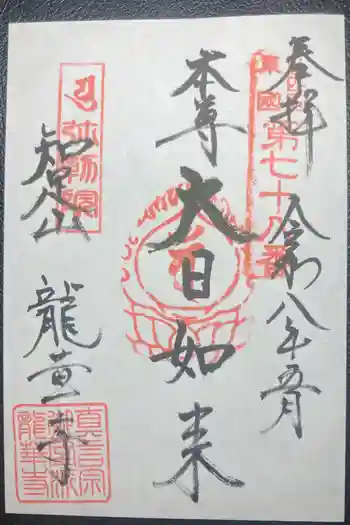 奉拝 令和八年五月
東国第七十八番
本尊 大日如来
弥勒園
知足山 龍華寺
真言宗
御室派
龍華寺